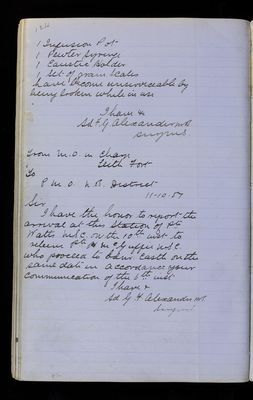 1 Infusion Pot
1 Pewter Syringe
1 Caustic Holder
1 Set of grain scales
have become unserviceable by
being broken while in use
I have &
Sd F. G. Alexander
From M.O. in charge
Leith Fort
To
P.M.O. N.B. District
11-10-57
Sir
I have the honor to report the
arrival at this Station of Pte
Watts MSC. on the 10th inst to
relieve Pte MSC
who proceed to Edin Castle on the
same date in accordance your
communication of the 6th inst
I have &
Sd G F Alexander